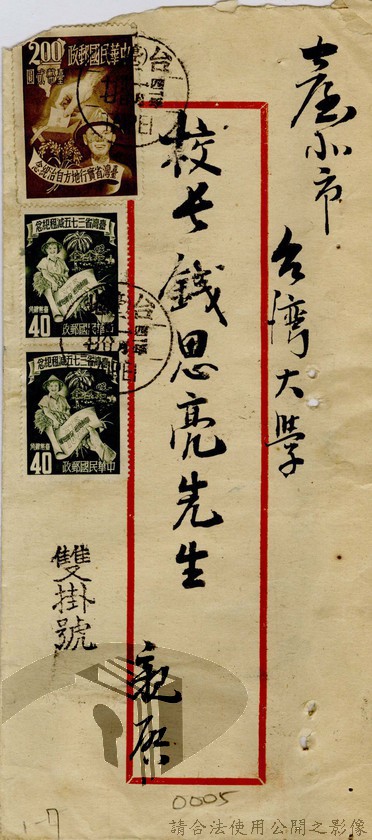 臺北市
台灣大學
校長錢思亮先生
親啟
雙掛號
中華民國郵政
2.00
臺灣省實行地方自治紀念
台
臺灣省三七五減租紀念
40
中華民國郵政
台
臺灣省三七五減租紀念
40
中華民國郵政
0005
請合法使用公開之影像